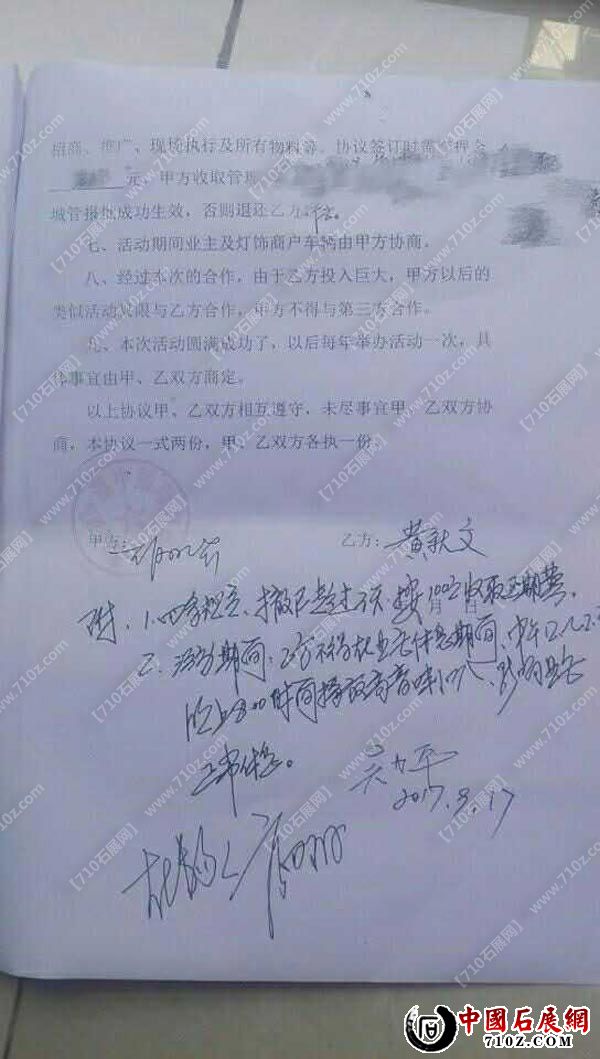 招商、推广、现场执行及所有物料等、协议签订时需
元，甲方收取管理
城管报批成功生效，否则退还乙方
七、活动期间业主及灯饰商户车辆由甲方协商。
八、经过本次的合作，由于乙方投入巨大，甲方以后的
类似活动只限与乙方合作，甲方不得与第三方合作。
九、本次活动圆满成功了，以后每年举办活动一次，具
体事宜由甲、乙双方商定。
以上协议甲、乙双方相互遵守，未尽事宜甲、乙双方协
商，本协议一式两份，甲、乙双方各执一份。
甲方： 乙方：黄秋文
月 日
附：1. 按100% 收取
2. 活动期间，乙方不得在业主休息期间，中午12
晚上8:00时间播放高音喇叭、影响业主
正常休息。
2017.8.17
【710石展网】www.710z.com
中國石展網
710z.com